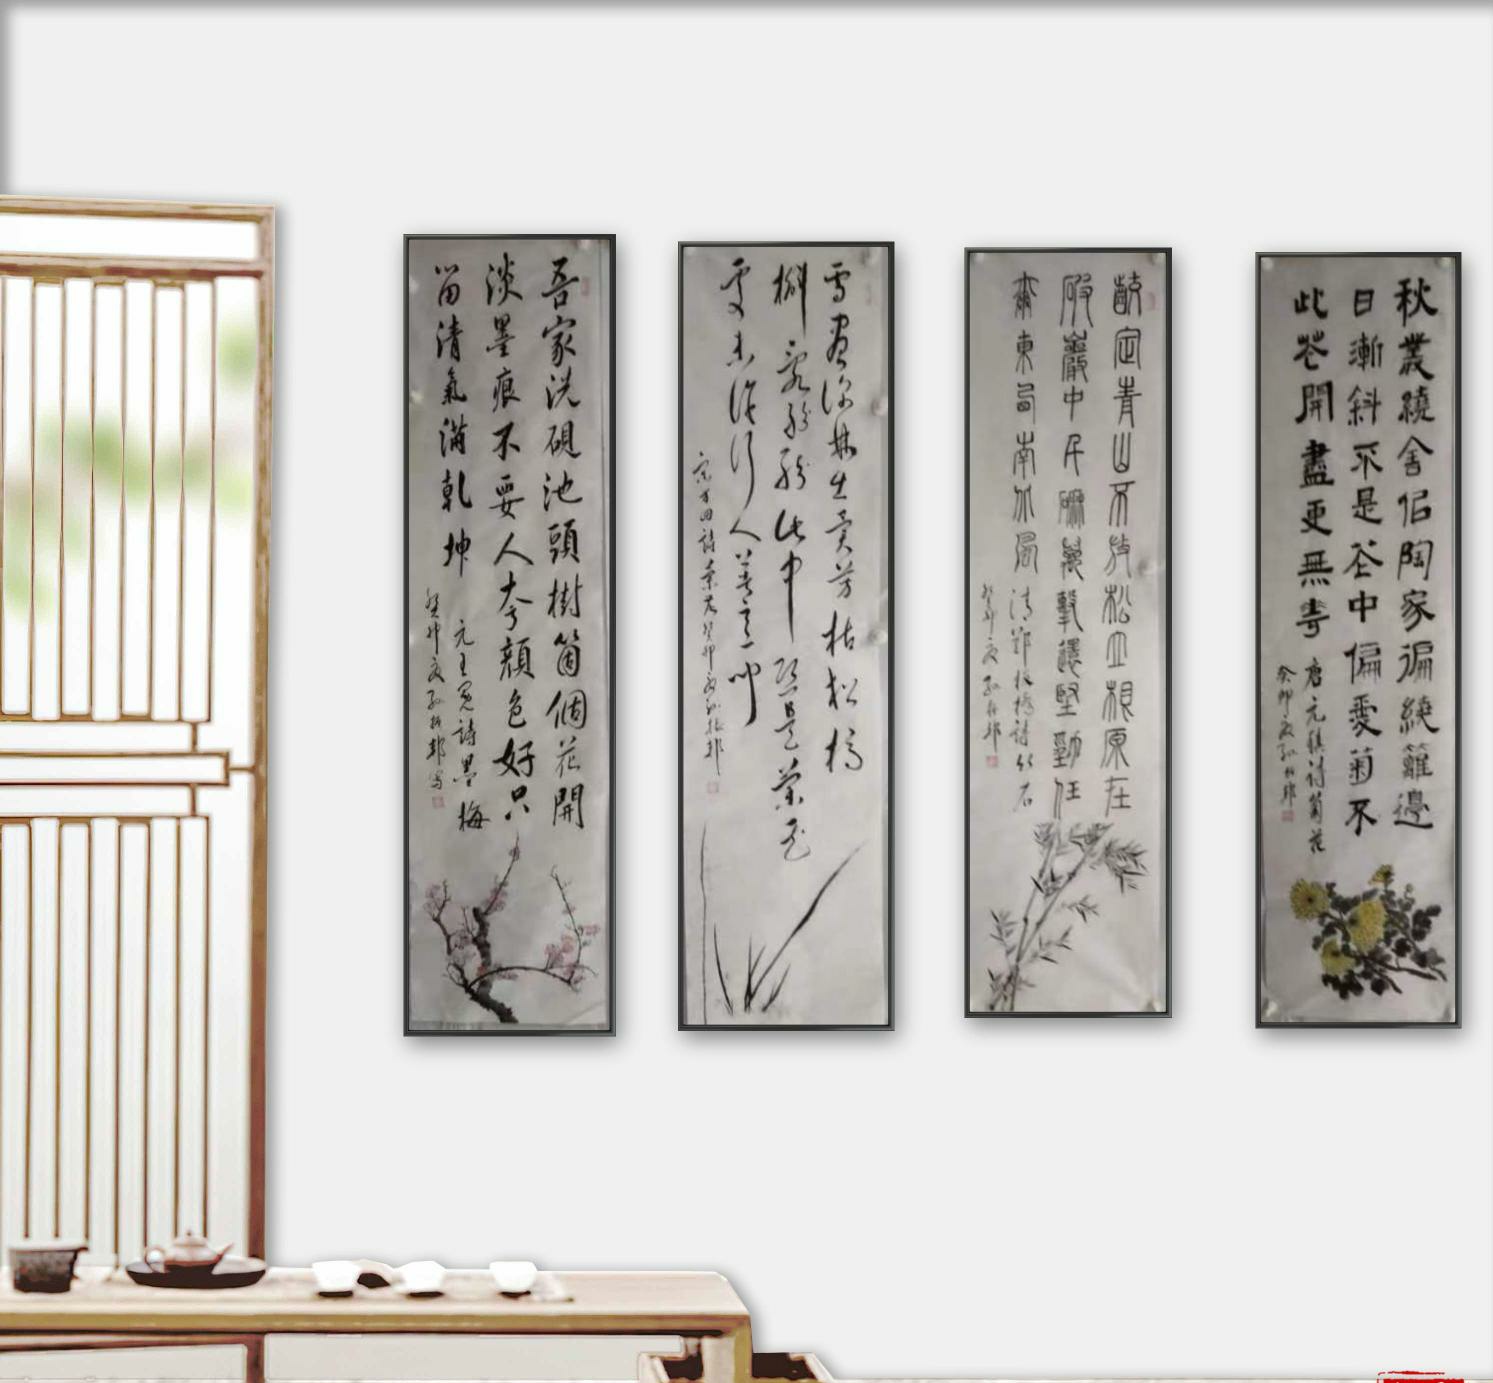 吾家洗硯池頭樹箇個花開
淡墨痕不要人夸顏色好只
留清氣滿乾坤
元王冕詩墨梅
癸卯夏孫振邦写
雪盡深林出異芬枯松槁
槲亂紛紛此中恐是蘭花
處未許行人著意聞
宋方回詩蘭花癸卯夏孫振邦
齩定青山不放松立根原在
破巖中千磨萬擊還堅勁任
爾東西南北風
清鄭板橋詩竹石
癸卯夏孫振邦
秋叢繞舍佀陶家徧繞籬邊
日漸斜不是花中偏愛菊不
此花開盡更無花
唐元稹詩菊花
癸卯夏孫振邦